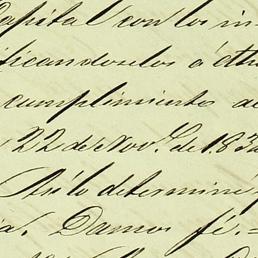 Capital con los in
ificandoselos á otr
cumplimiento de
22 de Nov.e de 183
Asi lo determiné
ia. Damos fé.=